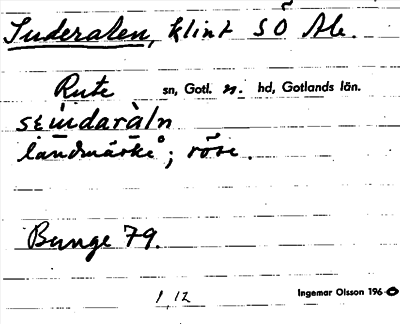 Suderalen, klint SÖ Ale.
Rute sn, Gotl. n. hd, Gotlands län.
landmärke; röse.
Bunge 79.
1,12
Ingemar Olsson 196